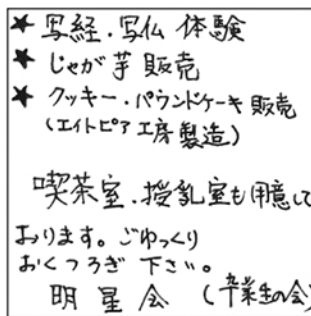 ★ 写経・写仏 体験
★ じゃが芋 販売
★ クッキー・パウンドケーキ 販売
(エイトピア工房製造)
喫茶室・授乳室も用意して
おります。ごゆっくり
おくつろぎ下さい。
明星会 (卒業生の会)